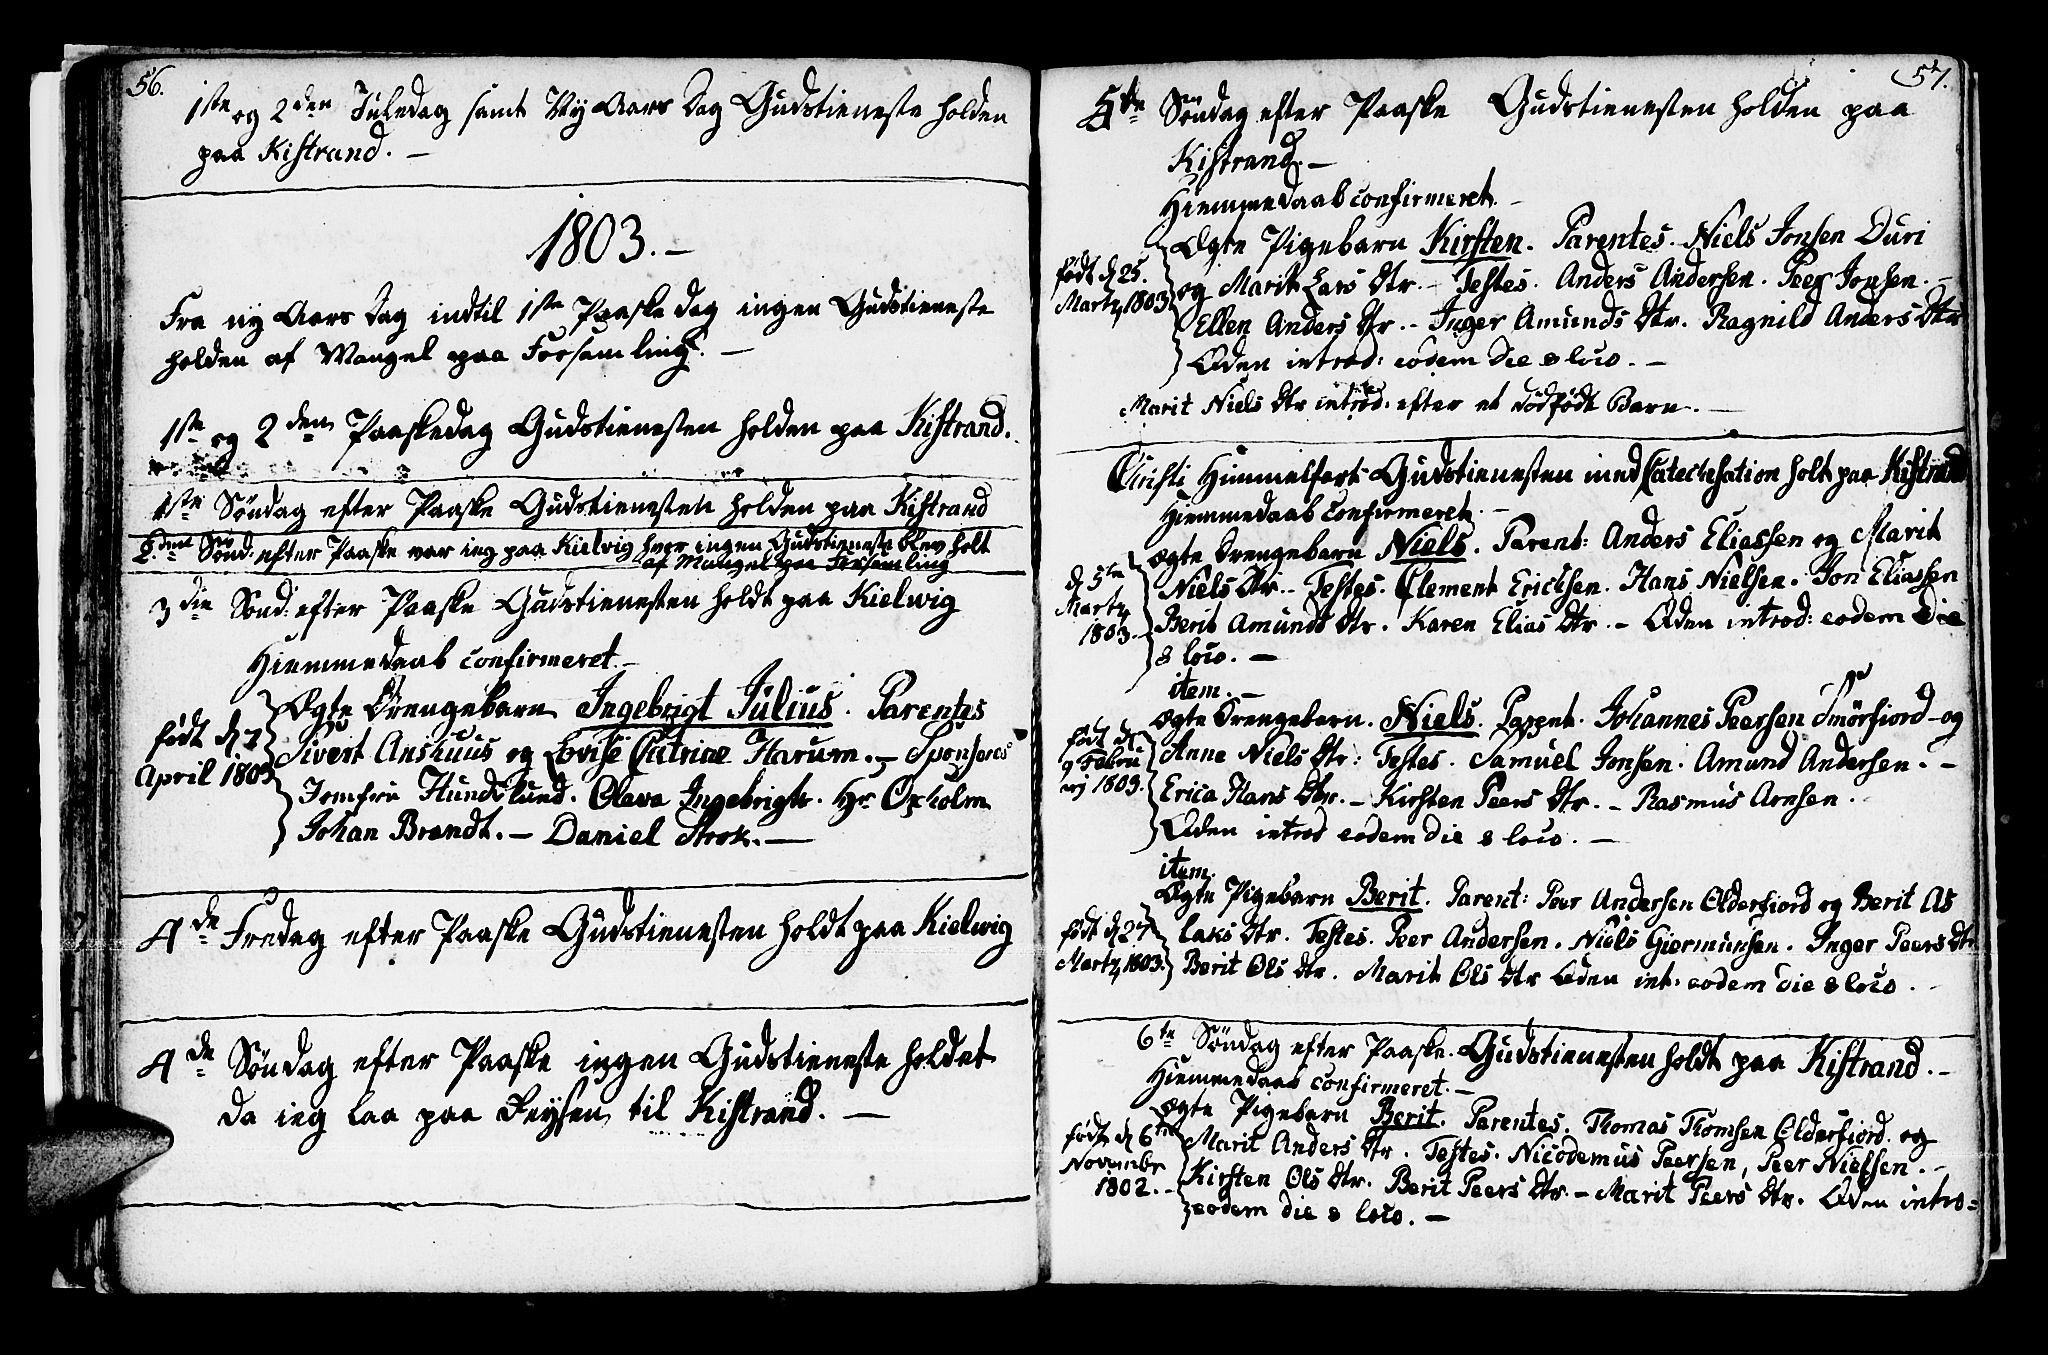 56.
1ste og 2den Juledag samt Ny Aars Dag Gudstieneste holden
paa Kistrand. —
1803. —
Fra ny Aars Dag indtil 1ste Paaske dag ingen Gudstieneste
holden af Mangel paa Forsamling. —
1ste og 2den Paaskedag Gudstienesten holden paa Kistrand.
1ste Søndag efter Paaske Gudstienesten holden paa Kistrand
2den Sønd: efter Paaske var ieg paa Kielvig hvor ingen Gudstieneste blev holt
af Mangel paa Forsamling
3die Sønd: efter Paaske Gudstienesten holdt paa Kielwig
Hiemmedaab confirmeret. —
Ægte Drengebarn Ingebrigt Julius. Parentes
født d 7
April 1803
Sivert Anshuus og Lovise Catrine Harum. — Sponsores
Jomfru Hundslund. Oleva Ingebrigtr. Hr Oxholm
Johan Brandt. — Daniel Strok. —
4de Fredag efter Paaske Gudstienesten holdt paa Kielwig
4de Søndag efter Paaske ingen Gudstieneste holdet
da ieg laa paa Reysen til Kistrand. —
57.
5te Søndag efter Paaske Gudstienesten holden paa
Kistrand. —
Hiemmedaab confirmeret. —
Ægte Pigebarn Kirsten. Parentes. Niels Jonsen Duri
født d 25.
Martz 1803
og Marit Lars Dtr. — Testes. Anders Andersen. Peer Jonsen. —
Ellen Anders Dtr. — Inger Amunds Dtr. Ragnild Anders Dtr
Øden introd: eodem die & loco. —
Marit Niels Dtr introd: efter et dødfødt Barn. —
Christi Himmelfart Gudstienesten med Catechisation holt paa Kistrand
Hiemmedaab confirmeret. —
ægte Drengebarn Niels. Parent: Anders Eliassen og Marit
d 5te
Martz
1803.
Niels Dtr. — Testes. Clement Ericksen. Hans Nielsen. Jon Eliassen
Berit Amunds Dtr. Karen Elias Dtr. — Øden introd: eodem die
& loco. —
item. —
ægte Drengebarn. Niels. Parent. Johannes Peersen Smørfiord og
født d
9 Febru
arj 1803.
Anne Niels Dtr: Testes. Samuel Jonsen. Amund Andersen. —
Erica Hans Dtr. — Kirsten Peers Dtr. — Rasmus Arnsen.
Øden introd eodem die & loco. —
item.
Ægte Pigebarn Berit. Parent: Peer Andersen Olderfiord og Berit As
født d 27
Martz 1803.
laks Dtr. Testes. Peer Andersen. Niels Giermunsen. Inger Peers Dtr
Berit Ols Dtr. Marit Ols Dtr Øden int: eodem die & loco.
6te Søndag efter Paaske. Gudstienesten holdt paa Kistrand. —
Hiemmedaab confirmeret. —
ægte Pigebarn Berit. Parentes. Thomas Thomsen Olderfiord og
født d 6te
Novembr
1802. —
Marit Anders Dtr. Testes. Nicodemus Peersen, Peer Nielsen. —
Kirsten Ols Dtr. Berit Peers Dtr — Marit Peers Dtr. Øden intro=
eodem die & loco. —